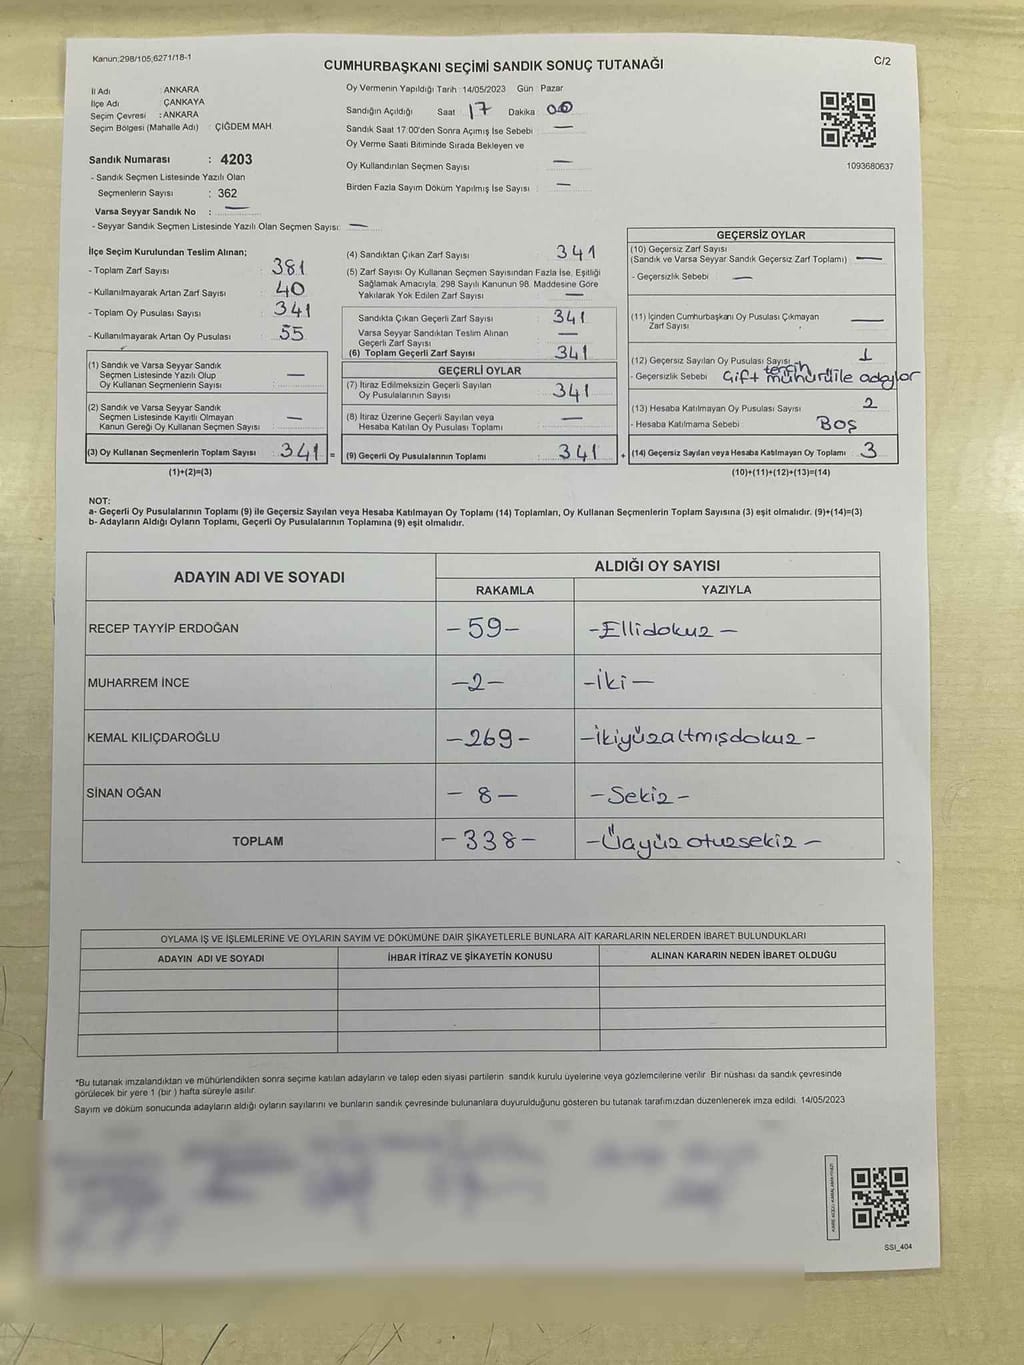 Kanun;298/105;6271/18-1
CUMHURBAŞKANI SEÇİMİ SANDIK SONUÇ TUTANAĞI
C/2
İl Adı : ANKARA
İlçe Adı : ÇANKAYA
Seçim Çevresi : ANKARA
Seçim Bölgesi (Mahalle Adı) : ÇİĞDEM MAH.
Sandık Numarası : 4203
- Sandık Seçmen Listesinde Yazılı Olan
Seçmenlerin Sayısı : 362
Varsa Seyyar Sandık No : —
- Seyyar Sandık Seçmen Listesinde Yazılı Olan Seçmen Sayısı: —
Oy Vermenin Yapıldığı Tarih : 14/05/2023 Gün Pazar
Sandığın Açıldığı Saat 17 Dakika : 00
Sandık Saat 17.00'den Sonra Açımış İse Sebebi : —
Oy Verme Saati Bitiminde Sırada Bekleyen ve
Oy Kullandırılan Seçmen Sayısı : —
Birden Fazla Sayım Döküm Yapılmış İse Sayısı : —
1093680637
İlçe Seçim Kurulundan Teslim Alınan;
- Toplam Zarf Sayısı : 381
- Kullanılmayarak Artan Zarf Sayısı : 40
- Toplam Oy Pusulası Sayısı : 341
- Kullanılmayarak Artan Oy Pusulası : 55
(1) Sandık ve Varsa Seyyar Sandık
Seçmen Listesinde Yazılı Olup
Oy Kullanan Seçmenlerin Sayısı : —
(2) Sandık ve Varsa Seyyar Sandık
Seçmen Listesinde Kayıtlı Olmayan
Kanun Gereği Oy Kullanan Seçmen Sayısı : —
(3) Oy Kullanan Seçmenlerin Toplam Sayısı : 341 =
(1)+(2)=(3)
(4) Sandıktan Çıkan Zarf Sayısı : 341
(5) Zarf Sayısı Oy Kullanan Seçmen Sayısından Fazla İse, Eşitliği
Sağlamak Amacıyla, 298 Sayılı Kanunun 98. Maddesine Göre
Yakılarak Yok Edilen Zarf Sayısı : —
Sandıkta Çıkan Geçerli Zarf Sayısı : 341
Varsa Seyyar Sandıktan Teslim Alınan
Geçerli Zarf Sayısı : —
(6) Toplam Geçerli Zarf Sayısı : 341
GEÇERLİ OYLAR
(7) İtiraz Edilmeksizin Geçerli Sayılan
Oy Pusulasının Sayısı : 341
(8) İtiraz Üzerine Geçerli Sayılan veya
Hesaba Katılan Oy Pusulası Toplamı : —
(9) Geçerli Oy Pusulalarının Toplamı : 341 +
GEÇERSİZ OYLAR
(10) Geçersiz Zarf Sayısı
(Sandık ve Varsa Seyyar Sandık Geçersiz Zarf Toplamı) : —
- Geçersizlik Sebebi : —
(11) İçinden Cumhurbaşkanı Oy Pusulası Çıkmayan
Zarf Sayısı : —
(12) Geçersiz Sayılan Oy Pusulası Sayısı : 1
- Geçersizlik Sebebi : Çift tercih mühürü ile adaylar
(13) Hesaba Katılmayan Oy Pusulası Sayısı : 2
- Hesaba Katılmama Sebebi : Boş
(14) Geçersiz Sayılan veya Hesaba Katılmayan Oy Toplamı : 3
(10)+(11)+(12)+(13)=(14)
NOT:
a- Geçerli Oy Pusulalarının Toplamı (9) ile Geçersiz Sayılan veya Hesaba Katılmayan Oy Toplamı (14) Toplamları, Oy Kullanan Seçmenlerin Toplam Sayısına (3) eşit olmalıdır. (9)+(14)=(3)
b- Adayların Aldığı Oyların Toplamı, Geçerli Oy Pusulalarının Toplamına (9) eşit olmalıdır.
ADAYIN ADI VE SOYADI
ALDIĞI OY SAYISI
RAKAMLA YAZIYLA
RECEP TAYYİP ERDOĞAN -59- -Ellidokuz-
MUHARREM İNCE -2- -İki-
KEMAL KILIÇDAROĞLU -269- -İkiyüzaltmışdokuz-
SİNAN OĞAN -8- -Sekiz-
TOPLAM -338- -Üçyüzotuzsekiz-
OYLAMA İŞ VE İŞLEMLERİNE VE OYLARIN SAYIM VE DÖKÜMÜNE DAİR ŞİKAYETLERLE BUNLARA AİT KARARLARIN NELERDEN İBARET BULUNDUKLARI
ADAYIN ADI VE SOYADI İHBAR İTİRAZ VE ŞİKAYETİN KONUSU ALINAN KARARIN NEDEN İBARET OLDUĞU
*Bu tutanak imzalandıktan ve mühürlendikten sonra seçime katılan adayların ve talep eden siyasi partilerin sandık kurulu üyelerine veya gözlemcilerine verilir. Bir nüshası da sandık çevresinde
görülecek bir yere 1 (bir ) hafta süreyle asılır.
Sayım ve döküm sonucunda adayların aldığı oyların sayılarını ve bunların sandık çevresinde bulunanlara duyurulduğunu gösteren bu tutanak tarafımızdan düzenlenerek imza edildi. 14/05/2023
KARE KODU KARALAMAYINIZ!
SSI_404